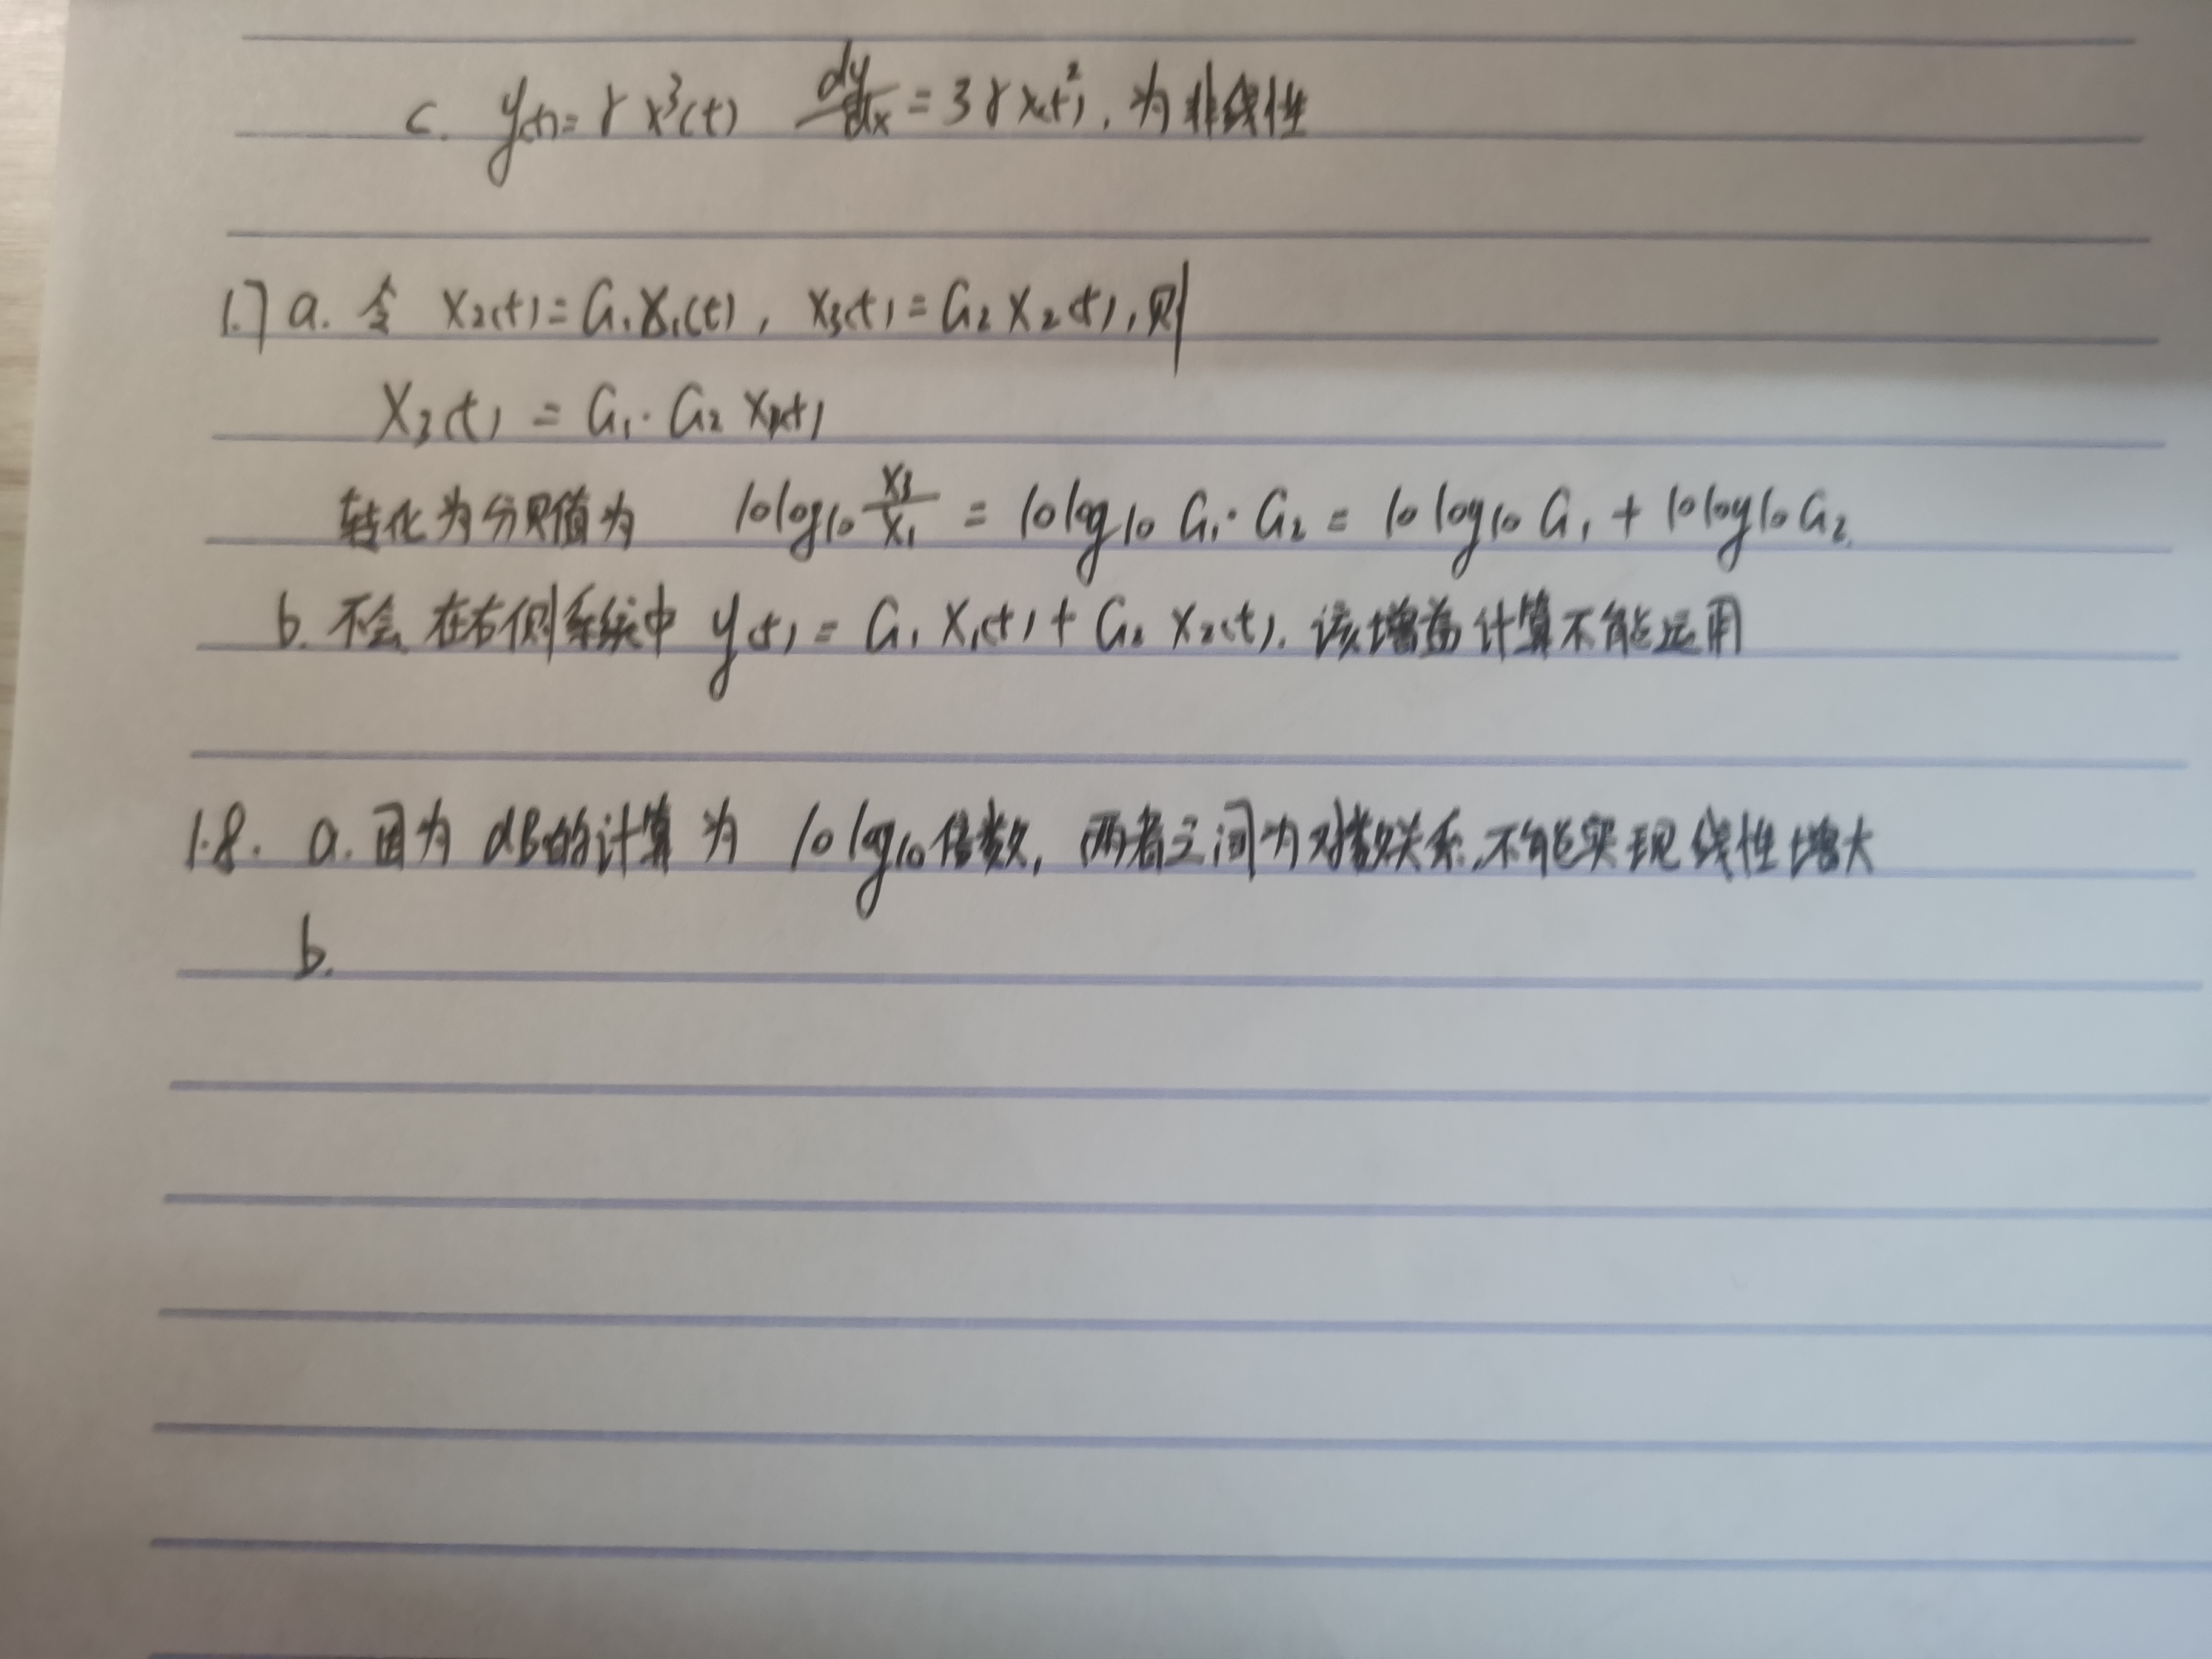 c. y(t)= γ x³(t) dy/dx = 3γ x(t)², 为非线性
1.7 a. 令 x₂(t)= G₁x₁(t), x₃(t)= G₂x₂(t), 则
x₃(t) = G₁·G₂ x₁(t)
转化为分贝值为 10log₁₀ x₃/x₁ = 10log₁₀ G₁·G₂ = 10log₁₀G₁ + 10log₁₀G₂
b. 不会 在右侧系统中 y(t) = G₁x₁(t) + G₂x₂(t). 该增益计算不能运用
1.8. a. 因为 dB的计算为 10log₁₀倍数, 两者之间为对数关系,不能实现线性增大
b.